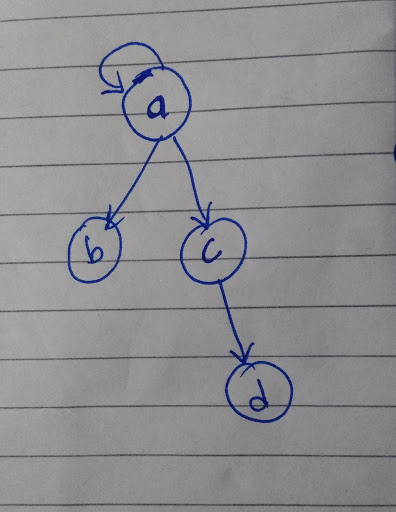 a
b c
d